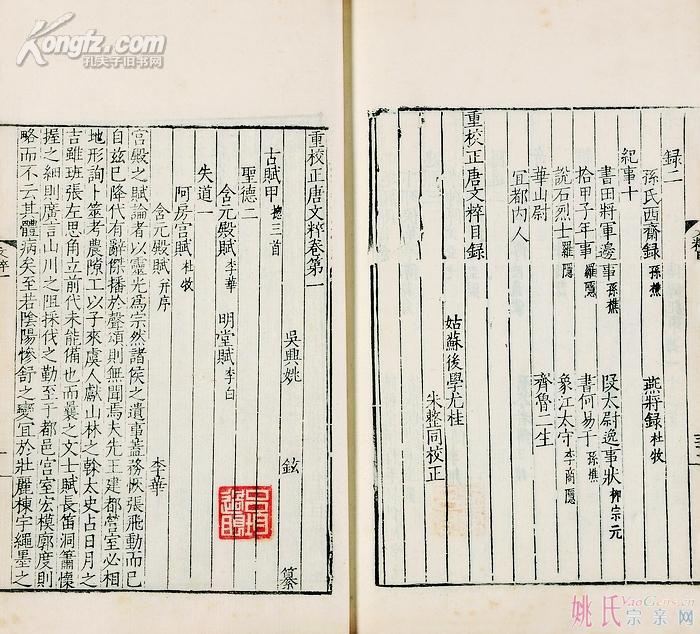 录二
孫氏西齋録 孫樵 燕將録 杜牧
紀事十
書田將軍邊事 孫樵 段太尉逸事狀 柳宗元
拾甲子年事 羅隱 書何易于 孫樵
說石烈士 羅隱 象江太守 李商隱
華山尉 齊魯二生
宜都内人
重校正唐文粹目録
姑蘇後學尤桂
朱整同校正
重校正唐文粹卷第一
吳興姚 鉉 纂
古賦甲 揔三首
聖德二
含元殿賦 李華 明堂賦 李白
失道一
阿房宮賦 杜牧
含元殿賦 并序 李華
宮殿之賦論者以靈光爲宗然諸侯之遺事蓋務恢張飛動而已
自兹已降代有辭傑播於聲頌則無聞焉夫先王建都營室必相
地形詢卜筮考農隙工以子來虞人獻山林之榦太史占日月之
吉雖班張左思角立前代未能備也而曩之文士賦長笛洞簫懷
握之細則廣言山川之阻採伐之勤至于都邑宮室宏模廓度則
略而不云其體病矣至若陰陽慘舒之變宜於壯麗棟宇繩墨之
文粹一
Kongfz.com
孔夫子旧书网
姚氏宗亲网
YaoGens.cn